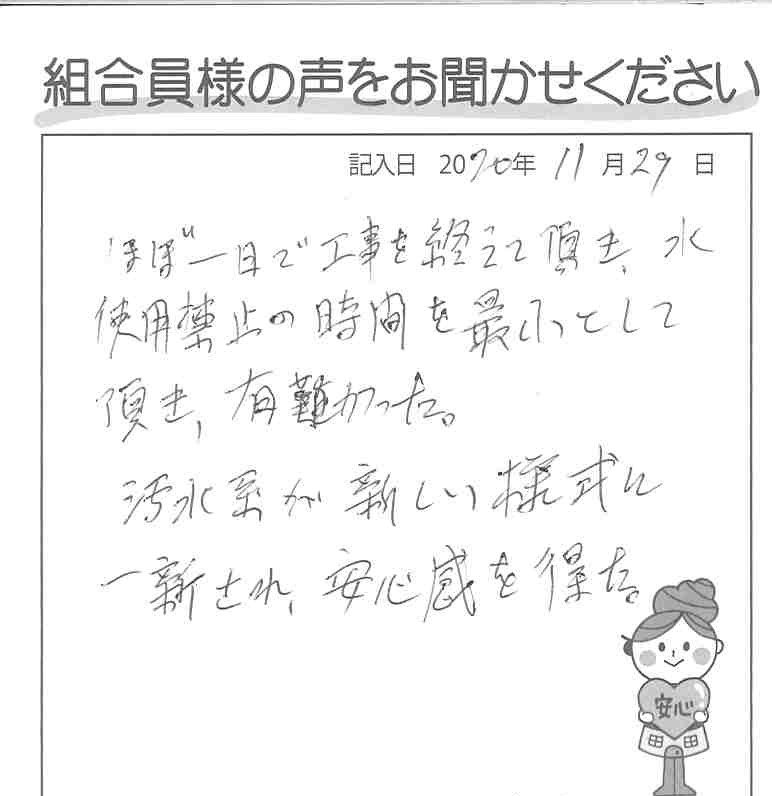 組合員様の声をお聞かせください
記入日 20 年 11月29日
ほぼ一日で工事を終えて頂き、水
使用禁止の時間を最小として
頂き、有難かった。
汚水系が新しい様式に
一新され、安心感を得た。
安心